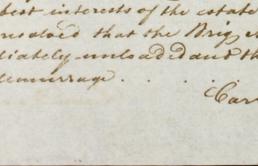 best interests of the estate
resolved that the Brig
diately unloaded and th
demurrage . . . .
Car